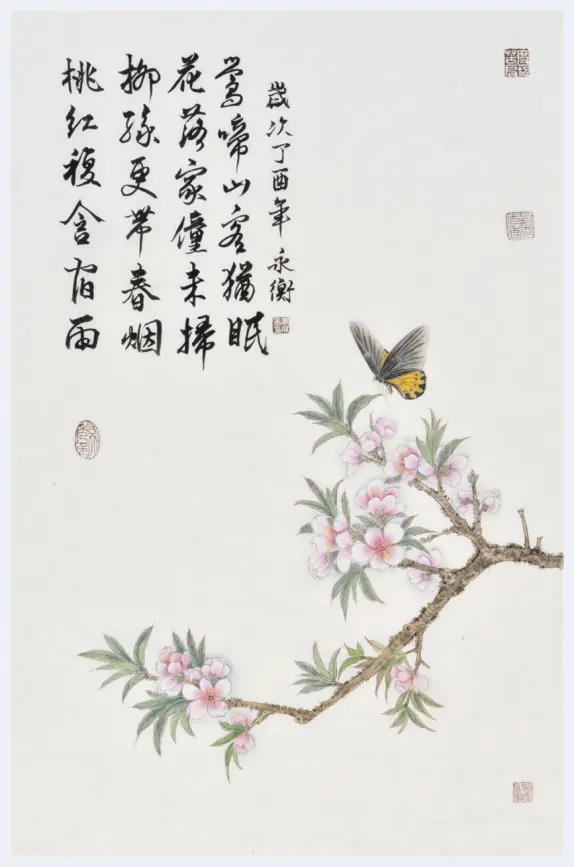 桃紅複含宿雨
柳綠更帶春烟
花落家僮未掃
鶯啼山客猶眠
歲次丁酉年 永衡